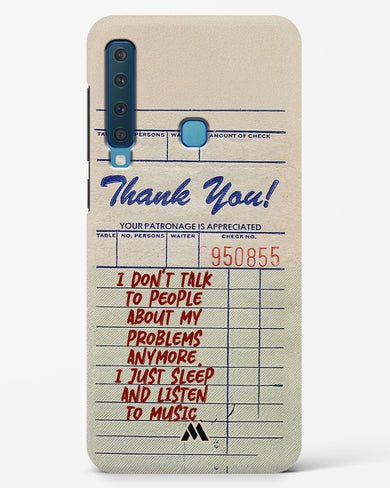 TA PERSONS WA AMOUNT OF CHECK
Thank You!
YOUR PATRONAGE IS APPRECIATED
TABLE NO. PERSONS WAITER CHECK NO.
950855
I DON'T TALK
TO PEOPLE
ABOUT MY
PROBLEMS
ANYMORE.
I JUST SLEEP
AND LISTEN
TO MUSIC.